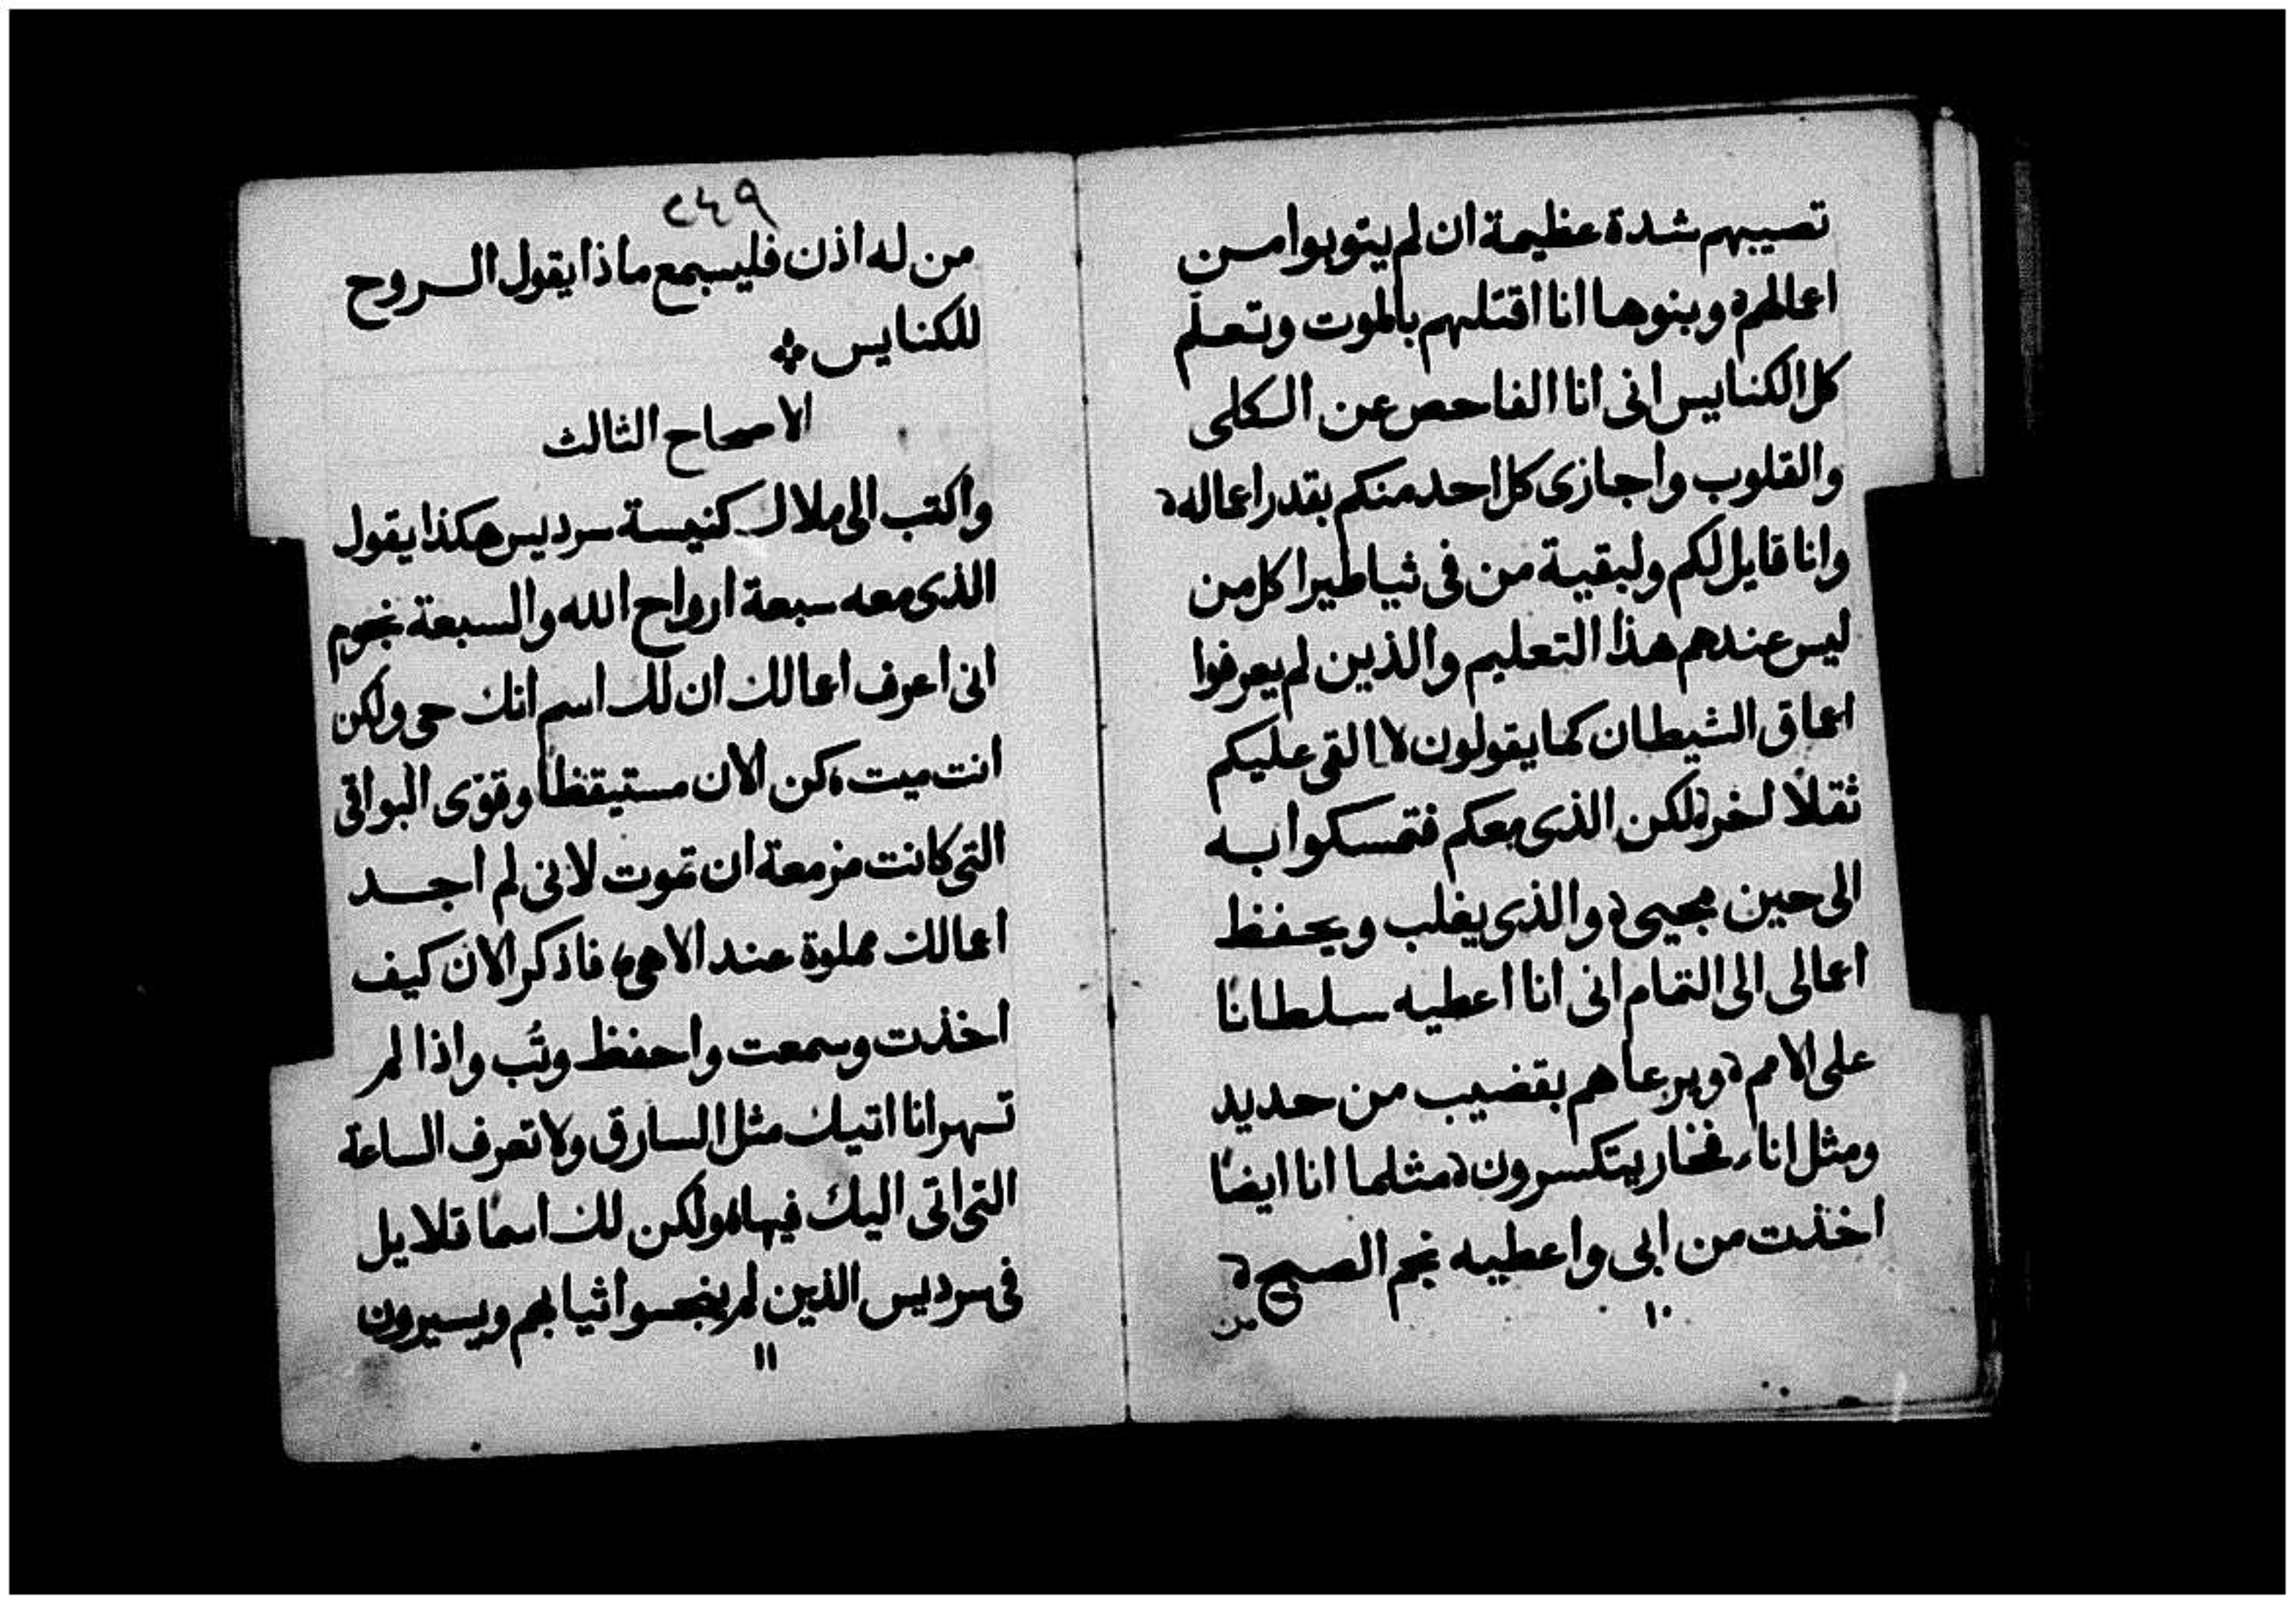 تصيبهم شدة عظيمة ان لم يتوبوا من
اعمالهم وبنوها انا اقتلهم بالموت وتعلم
كل الكنايس انى انا الفاحص عن الكلى
والقلوب واجازى كل احد منكم بقدر اعماله
وانا قايل لكم ولبقية من فى ثياطيرا كل من
ليس عندهم هذا التعليم والذين لم يعرفوا
اعماق الشيطان كما يقولون لا القى عليكم
ثقلًا اخر لكن الذى معكم فتمسكوا به
الى حين مجيى والذى يغلب ويحفظ
اعمالى الى التمام انى انا اعطيه سلطانا
على الامم ويرعاهم بقضيب من حديد
ومثل اناء فخار يتكسرون مثلما انا ايضًا
اخذت من ابى واعطيه نجم الصبح
من
١٠
٢٤٩
من له اذن فليسمع ماذا يقول الروح
للكنايس
الاصحاح الثالث
واكتب الى ملاك كنيسة سرديس هكذا يقول
الذى معه سبعة ارواح الله والسبعة نجوم
انى اعرف اعمالك ان لك اسم انك حى ولكن
انت ميت كن الان مستيقظًا وقوّى البواقى
التى كانت مزمعة ان تموت لانى لم اجد
اعمالك مملوة عند الاهى فاذكر الان كيف
اخذت وسمعت واحفظ وتُب واذا لم
تسهر انا اتيك مثل السارق ولا تعرف الساعة
التى اتى اليك فيها ولكن لك اسمًا قلايل
فى سرديس الذين لم ينجسوا ثيابهم ويسيرون
١١